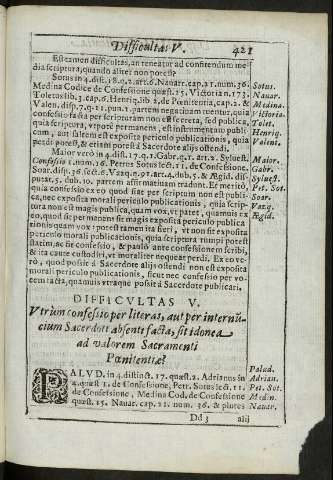 Difficultas V. 421
Est tamen difficultas, an teneatur ad confitendum me-
dia scriptura, quando aliter non potest?
Sotus in 4. dist. 18. q. 2. art. 6. Nauar. cap. 21. num. 36. Sotus.
Medina Codice de Confessione quæst. 15. Victoria n. 173. Nauar.
Toletus lib. 3. cap. 6. Henriq. lib. 2. de Pœnitentia, cap. 2. & Medina.
Valen. disp. 7. q. 11. pun. 1. partem negatiuam tuentur, quia Victoria.
confessio facta per scripturam non est secreta, sed publica, Tolet.
quia scriptura, vtpote permanens, est instrumentum publi- Henriq.
cum, aut saltem est exposita periculo publicationis, quia Valent.
perdi potest, & etiam potest à Sacerdote alijs ostendi.
Maior verò in 4. dist. 17. q. 1. Gabr. q. 1. art. 2. Syluest. Maior.
Confessio 1. num. 16. Petrus Sotus lect. 11. de Confessione. Gabr.
Soar. disp. 36. sect. 6. Vazq. q. 91. art. 4. dub. 5. & Ægid. dis- Syluest.
putat. 5. dub. 10. partem affirmatiuam tradunt. Et meritò, Pet. Sot.
quia confessio ex eo quod fiat per scriptum non est publi- Soar.
ca, nec exposita morali periculo publicationis, quia scrip- Vazq.
tura non est magis publica, quam vox, vt patet, quamuis ex Ægid.
eo, quod sit permanens sit magis exposita periculo publica-
tionis quam vox: potest tamen ita fieri, vt non sit exposita
morali periculo publicationis, quia scriptura rumpi potest
statim, ac sit confessio, & paulò ante confessionem scribi,
& ita caute custodiri, vt moraliter nequeat perdi. Ex eo ve-
rò, quod possit à Sacerdote alijs ostendi non est exposita
morali periculo publicationis, sicut nec confessio per vo-
cem facta, quamuis vtraque possit à Sacerdote publicari.
DIFFICVLTAS V.
Vtrùm confessio per literas, aut per internũ-
cium Sacerdoti absenti facta, sit idonea
ad valorem Sacramenti
Pœnitentiæ?
PALVD. in 4. distinct. 17. quæst. 2. Adrianus in Palud.
4. quæst. 1. de Confessione, Petr. Sotus lect. 11. Adrian.
de Confessione, Medina Cod. de Confessione Pet. Sot.
quæst. 15. Nauar. cap. 21. num. 36. & plures Medin.
Nauar.
Dd 3 alij